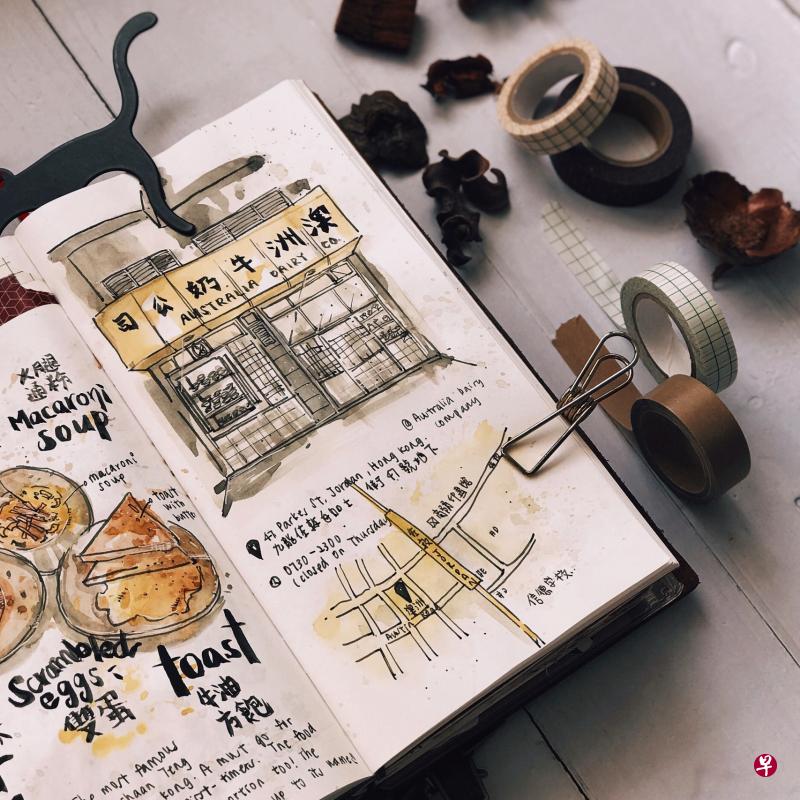 火腿
通粉
Macaroni
soup
macaroni
soup
toast
with
butter
Scrambled
eggs:
雙蛋
toast
牛油
方飽
The most famous
chaan teng
kong. A must go for
first-timers. The food
portion too! The
up to its name!
司公奶牛洲澳
AUSTRALIA DAIRY CO.
@ Australia Dairy
Company
47 Parkes St, Jordan, Hong Kong.
九龍佐敦白加士街47號地下
0730-2300
(closed on Thursday)
澳洲
JORDAN
AUSTIN
RD
RD
早